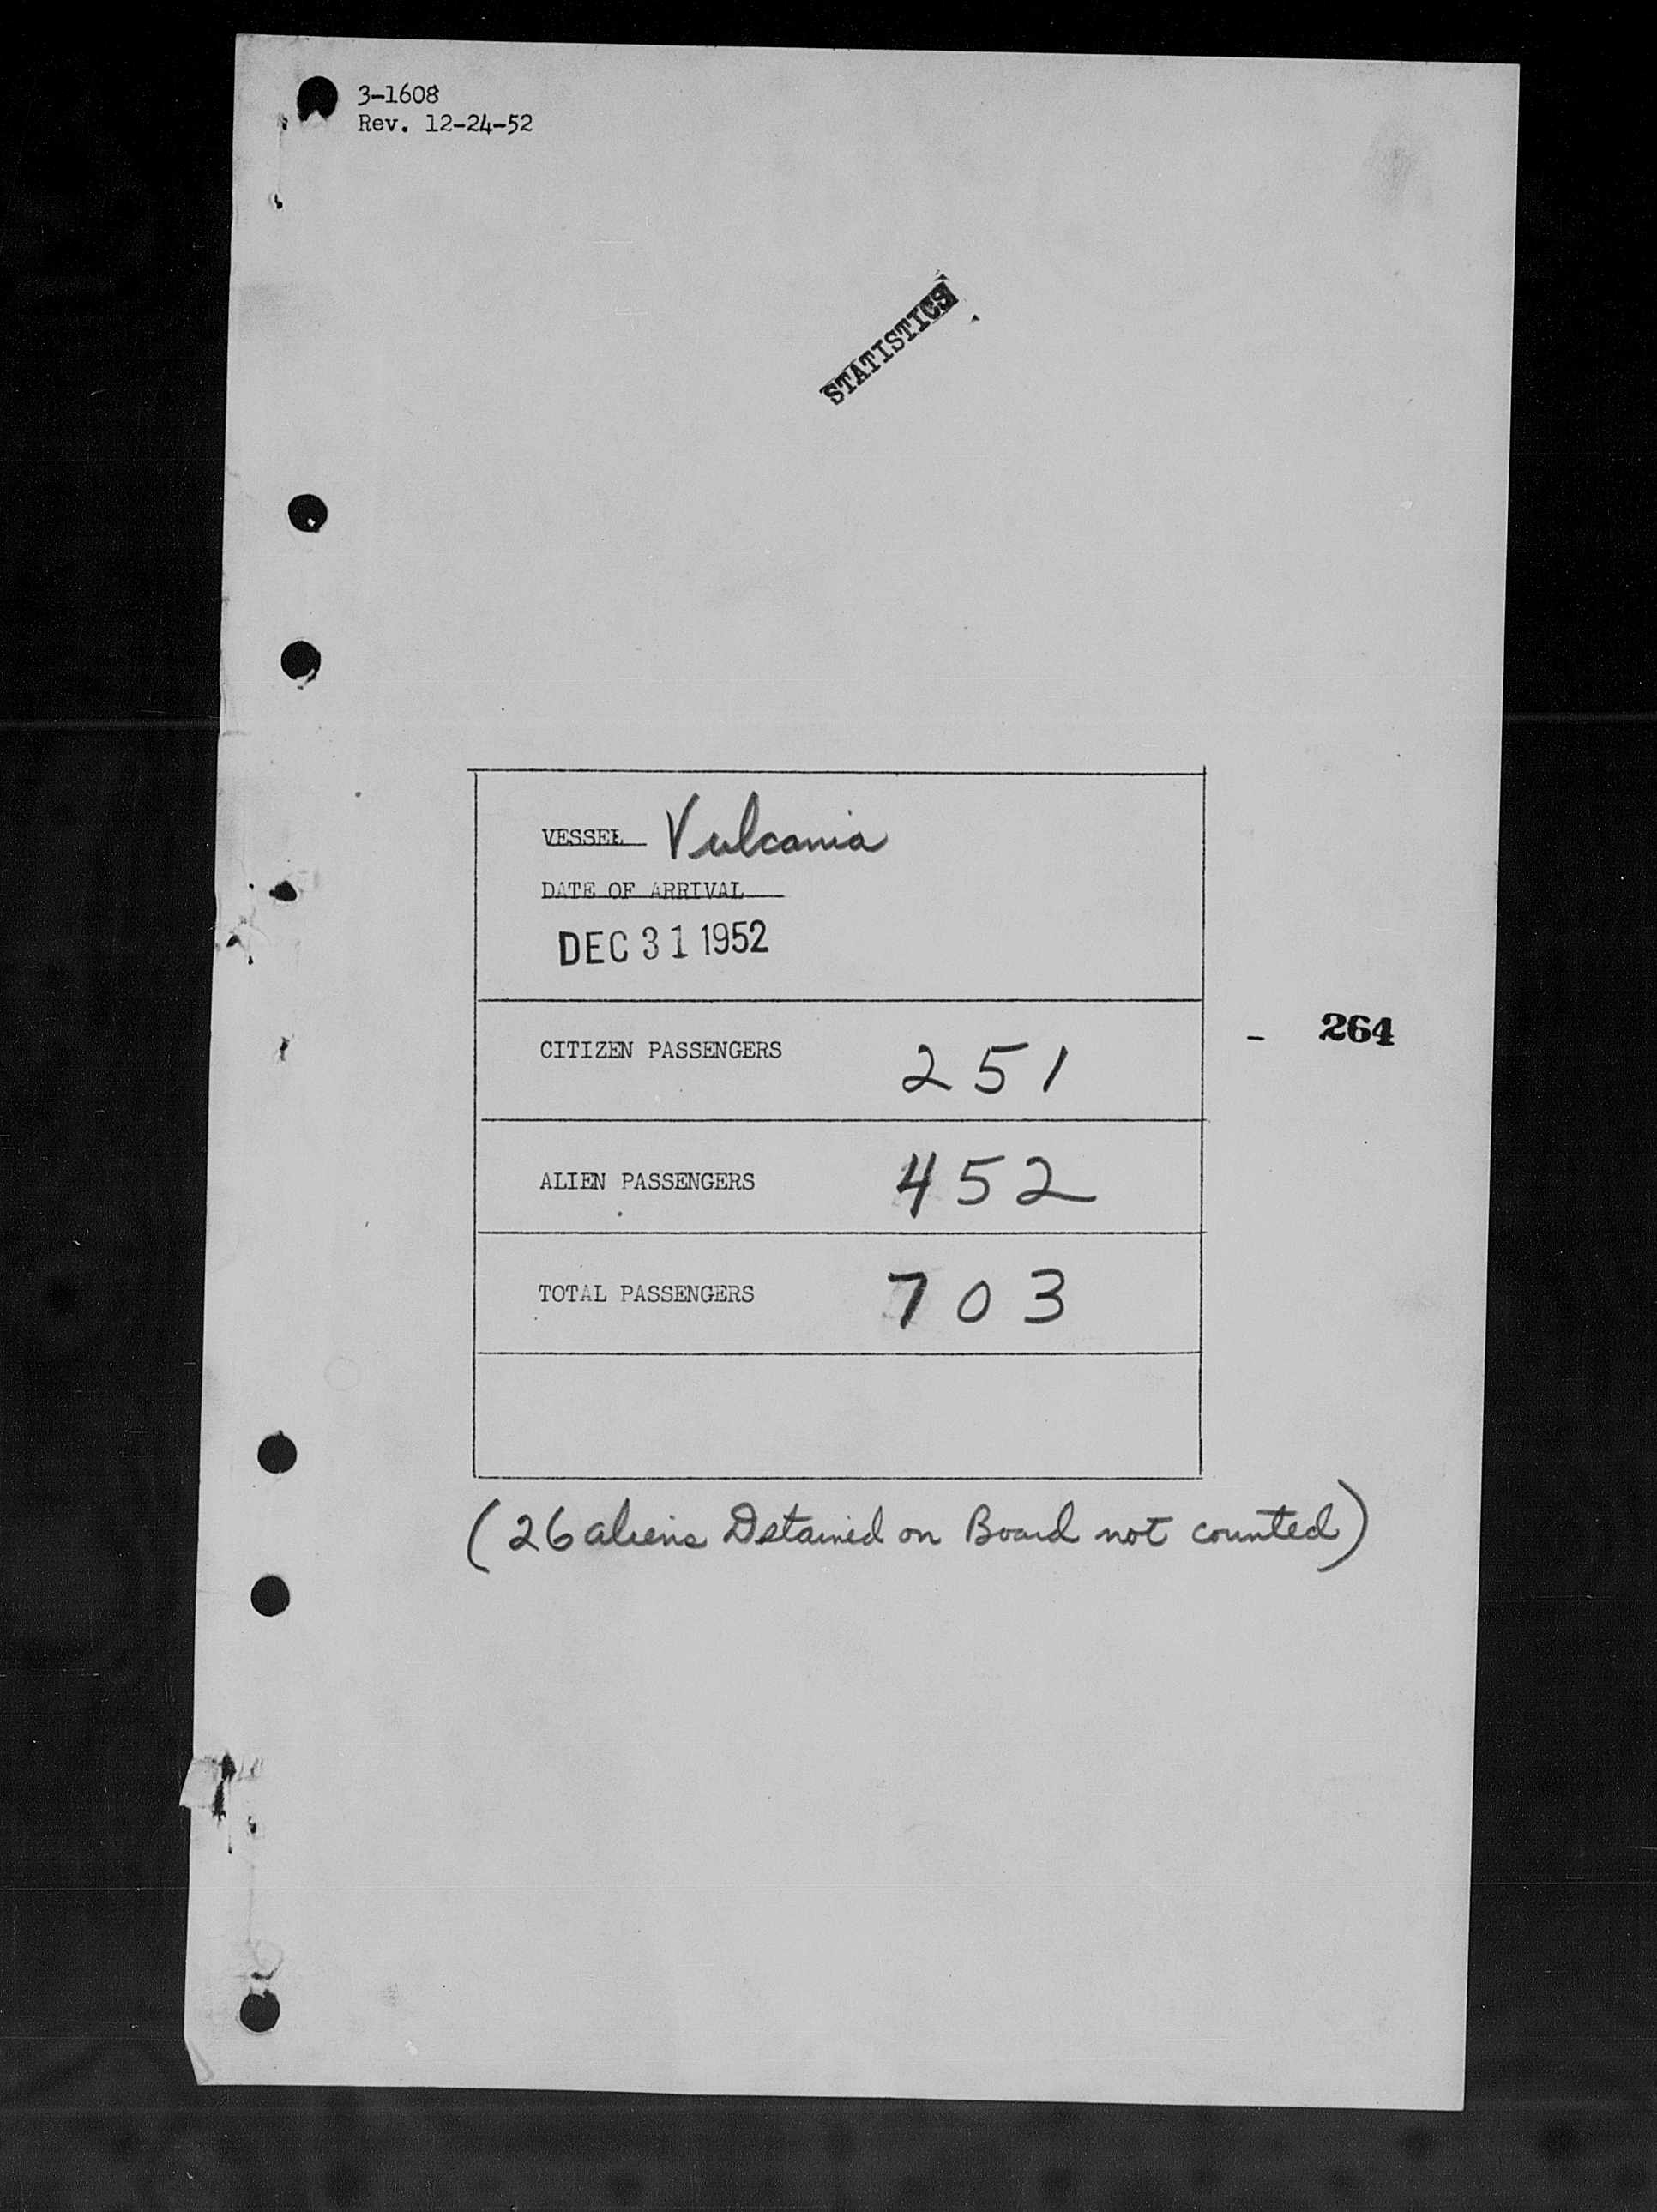 3-1608
Rev. 12-24-52
STATISTICS
VESSEL Vulcania
DATE OF ARRIVAL
DEC 31 1952
CITIZEN PASSENGERS 251
- 264
ALIEN PASSENGERS 452
TOTAL PASSENGERS 703
(26 aliens Detained on Board not counted)